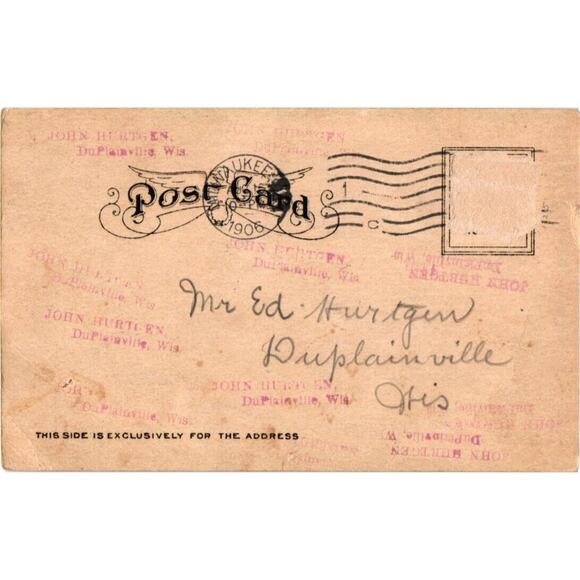 JOHN HURTGEN,
DuPlainville, Wis.
JOHN HURTGEN
DuPlainville,
Post Card
MILWAUKEE
1906
1
C
JOHN HURTGEN,
DuPlainville, Wis
JOHN HURTGEN
DuPlainville, Wis
JOHN HURTGEN
DuPlainville, Wis.
Mr Ed Hurtgen
JOHN HURTGEN,
DuPlainville, Wis.
Duplainville
DuPlainville, Wis.
JOHN HURTGEN,
DuPlainville, Wis
Wis
THIS SIDE IS EXCLUSIVELY FOR THE ADDRESS
JOHN HURTGEN
DuPlainville, W